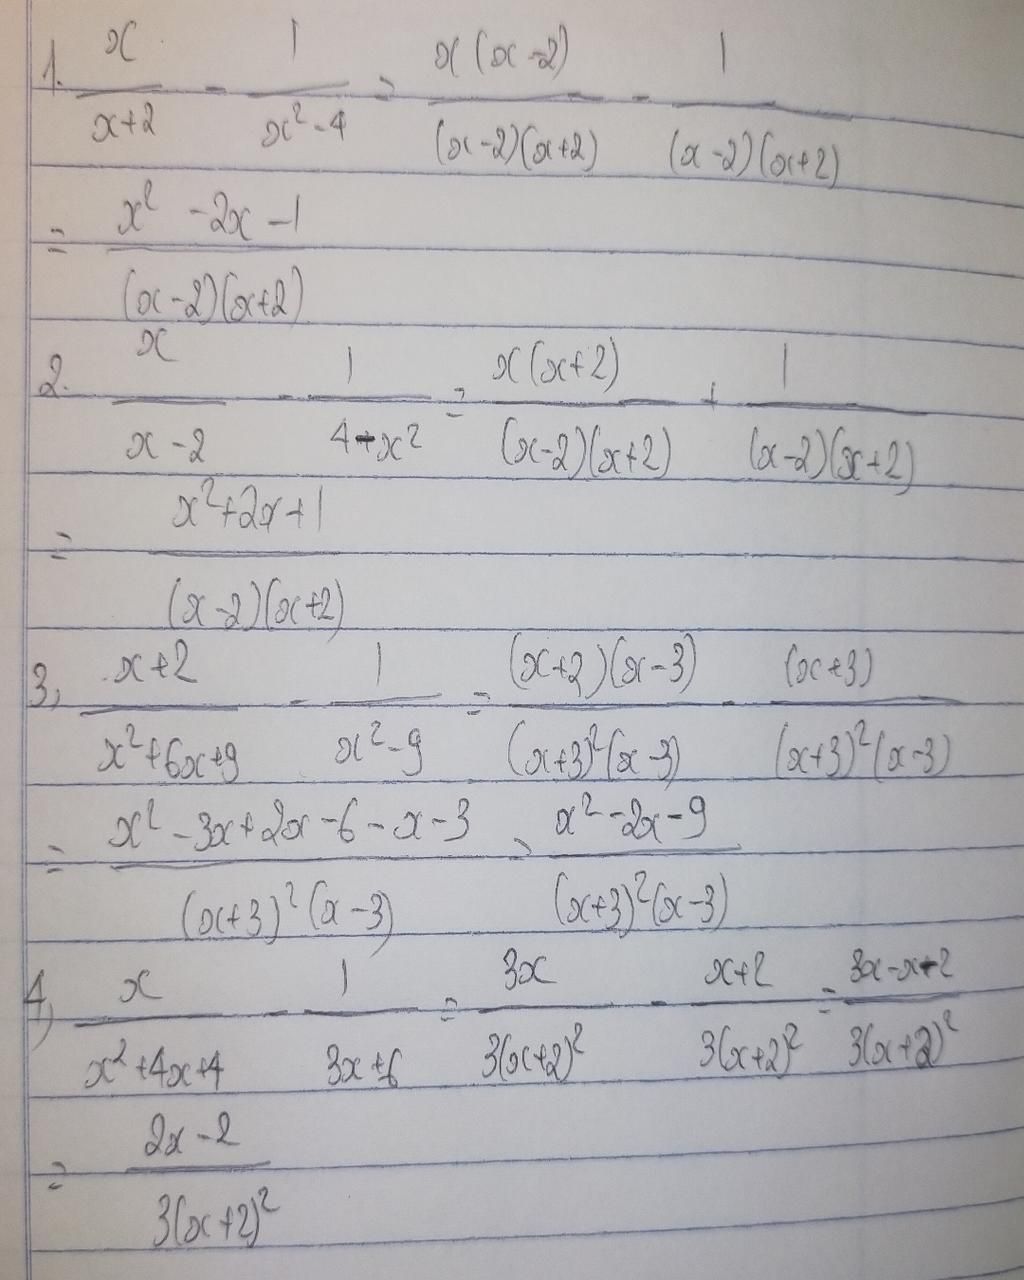 1. x/(x+2) - 1/(x²-4) = x(x-2)/((x-2)(x+2)) - 1/((x-2)(x+2))
= (x² -2x -1)/((x-2)(x+2))
2. x/(x-2) - 1/(4-x²) = x(x+2)/((x-2)(x+2)) + 1/((x-2)(x+2))
= (x²+2x+1)/((x-2)(x+2))
3, (x+2)/(x²+6x+9) - 1/(x²-9) = (x+2)(x-3)/((x+3)²(x-3)) - (x+3)/((x+3)²(x-3))
= (x²-3x+2x-6-x-3)/((x+3)²(x-3)) = (x²-2x-9)/((x+3)²(x-3))
4, x/(x²+4x+4) - 1/(3x+6) = 3x/(3(x+2)²) - (x+2)/(3(x+2)²) = (3x-x-2)/(3(x+2)²)
= (2x-2)/(3(x+2)²)